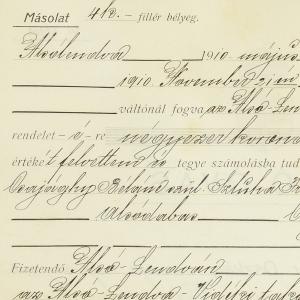 Másolat 4 k. – fillér bélyeg.
Alsólendva 1910. május
1910 November 2 i én
váltónál fogva az Alsó-Len
rendelet – é – re négyezer korona
értéke't felvettem és tegye számolásba tud
Csajághy Beláné szül. Szluha
Alsódabas
Fizetendő Alsó-Lendván
az Alsó-Lendva-Vidéki taka